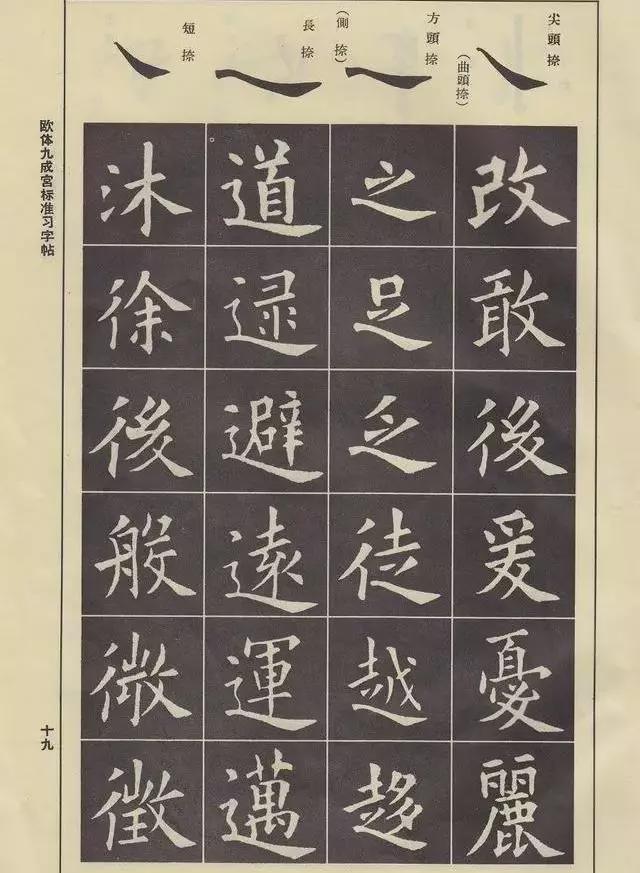 尖頭捺
（曲頭捺）
改敢後爰憂麗
方頭捺
（側捺）
之足乏徒越趍
長捺
道逮避遠運邁
短捺
沐徐後般微徵
欧体九成宮标准习字帖
十九